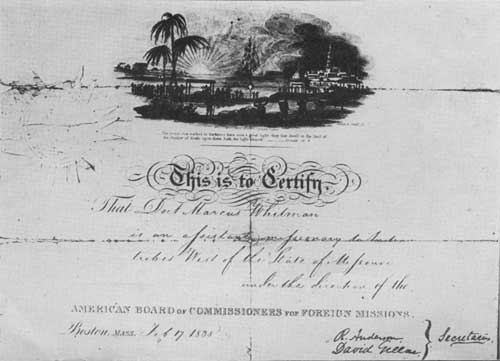 The people that walked in darkness have seen a great light, they that dwell in the land of
the shadow of death, upon them hath the light shined
This is to Certify,
That Doct Marcus Whitman
is an assistant missionary to Indian
tribes West of the State of Missouri
under the direction of the
AMERICAN BOARD OF COMMISSIONERS FOR FOREIGN MISSIONS.
Boston, MASS. Feb 17 1835
R. Anderson
David Greene
Secretaries